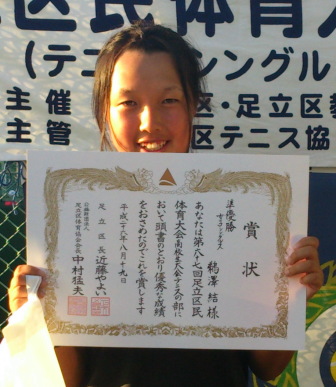 区民体育
(テニス シングル
主催 区・足立区
主管 区テニス協
賞状
準優勝
女子シングルス
鵜澤 結 様
あなたは第六十七回足立区民
体育大会高校生大会テニスの部に
おいて頭書のとおり優秀な成績
をおさめたのでこれを賞します
平成二十八年八月十九日
足立区長 近藤やよい
公益財団法人
足立区体育協会会長 中村猛夫